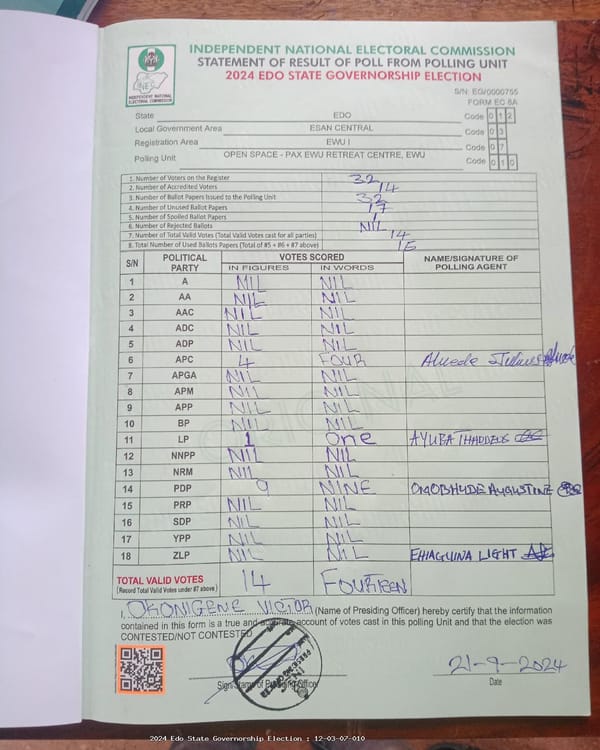 INDEPENDENT NATIONAL ELECTORAL COMMISSION
STATEMENT OF RESULT OF POLL FROM POLLING UNIT
2024 EDO STATE GOVERNORSHIP ELECTION
INEC
INDEPENDENT NATIONAL ELECTORAL COMMISSION
S/N: EG/0000755
FORM EC 8A
State EDO Code 0 1 2
Local Government Area ESAN CENTRAL Code 0 3
Registration Area EWU I Code 0 7
Polling Unit OPEN SPACE - PAX EWU RETREAT CENTRE, EWU Code 0 1 0
1. Number of Voters on the Register 32
2. Number of Accredited Voters 14
3. Number of Ballot Papers Issued to the Polling Unit 32
4. Number of Unused Ballot Papers 17
5. Number of Spoiled Ballot Papers 1
6. Number of Rejected Ballots NIL
7. Number of Total Valid Votes (Total Valid Votes cast for all parties) 14
8. Total Number of Used Ballots Papers (Total of #5 + #6 + #7 above) 15
S/N POLITICAL PARTY VOTES SCORED NAME/SIGNATURE OF POLLING AGENT
IN FIGURES IN WORDS
1 A NIL NIL
2 AA NIL NIL
3 AAC NIL NIL
4 ADC NIL NIL
5 ADP NIL NIL
6 APC 4 FOUR
7 APGA NIL NIL
8 APM NIL NIL
9 APP NIL NIL
10 BP NIL NIL
11 LP 1 One AYUBA THADDEUS
12 NNPP NIL NIL
13 NRM NIL NIL
14 PDP 9 NINE OMOBHUDE AUGUSTINE
15 PRP NIL NIL
16 SDP NIL NIL
17 YPP NIL NIL
18 ZLP NIL NIL EHIAGUINA LIGHT
TOTAL VALID VOTES 14 FOURTEEN
(Record Total Valid Votes under #7 above)
I, OKONIGENE VICTOR (Name of Presiding Officer) hereby certify that the information
contained in this form is a true and accurate account of votes cast in this polling Unit and that the election was
CONTESTED/NOT CONTESTED
21-9-2024
Sign/Stamp of Presiding Officer Date
2024 Edo State Governorship Election : 12-03-07-010